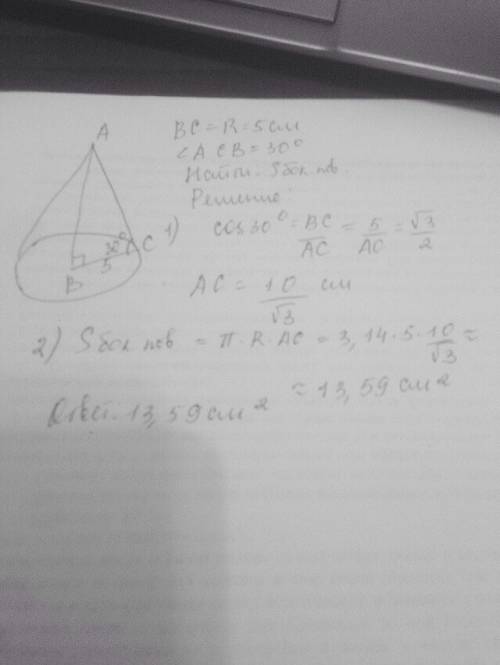 A
BC = R = 5 см
∠ACB = 30°
Найти: Sбок пов.
Решение:
30° C
5
B
1) cos 30° = BC/AC = 5/AC = √3/2
AC = 10/√3 см
2) Sбок пов = π·R·AC = 3,14·5·10/√3 ≈
≈ 13,59 см²
Ответ: 13,59 см²